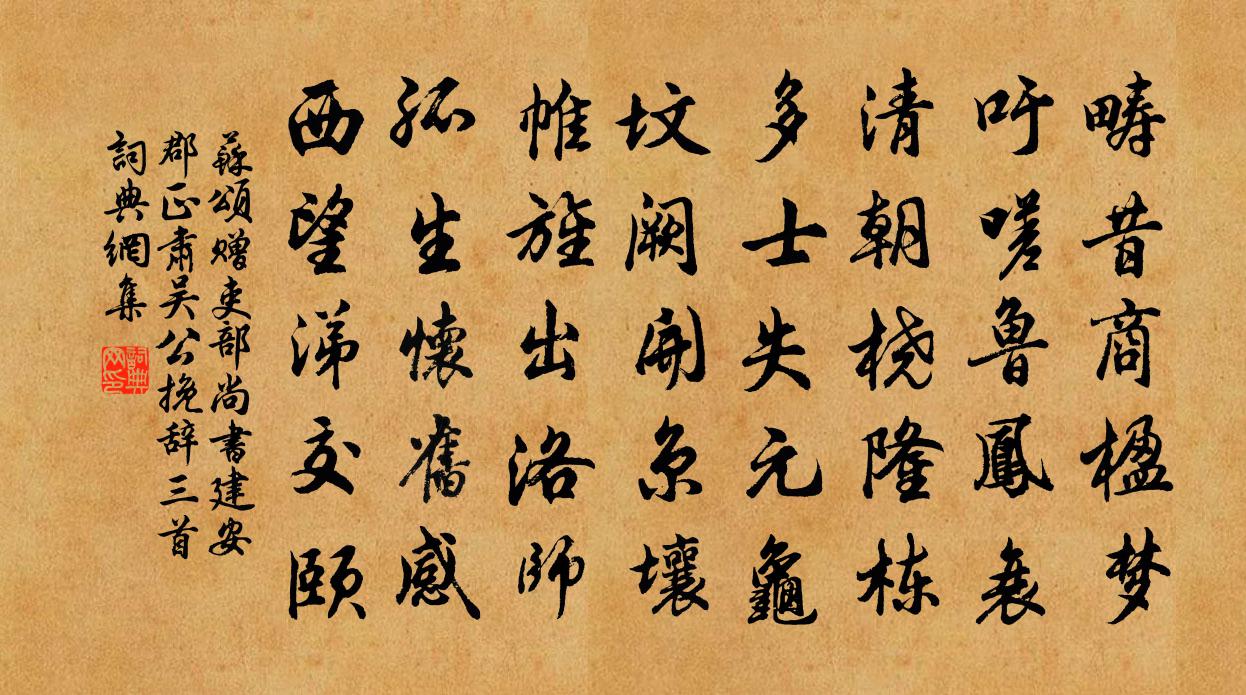 畴昔商楹梦
吁嗟魯鳳衰
清朝桡隆栋
多士失元龜
坟闕開京壤
帷旌出洛師
孤生懷舊感
西望涕交頤
蘇頌赠吏部尚書建安
郡正肅吴公挽辞三首
詞典網集
詞典网印